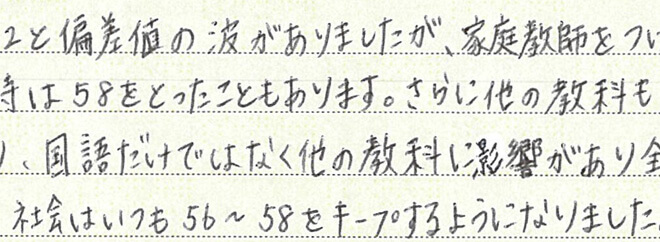 2と偏差値の波がありましたが、家庭教師をつい
時は58をとったこともあります。さらに他の教科も
、国語だけではなく他の教科に影響があり全
社会はいつも56～58をキープするようになりました。